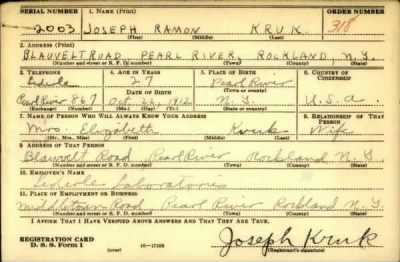 SERIAL NUMBER 1. NAME (Print) ORDER NUMBER
2003 JOSEPH RAMON KRUK 318
(First) (Middle) (Last)
2. ADDRESS (Print)
BLAUVELT ROAD PEARL RIVER, ROCKLAND, N.Y.
(Number and street or R. F. D. number) (Town) (County) (State)
3. TELEPHONE 4. AGE IN YEARS 5. PLACE OF BIRTH 6. COUNTRY OF CITIZENSHIP
27 Pearl River
DATE OF BIRTH (Town or county)
Pearl River 867 Oct. 1912 N.Y. U.S.A.
(Exchange) (Number) (Mo.) (Day) (Yr.) (State or country)
7. NAME OF PERSON WHO WILL ALWAYS KNOW YOUR ADDRESS 8. RELATIONSHIP OF THAT PERSON
Mrs. Elizabeth Kruk Wife
(Mr., Mrs., Miss) (First) (Middle) (Last)
9. ADDRESS OF THAT PERSON
Blauvelt Road Pearl River Rockland N.Y.
(Number and street or R. F. D. number) (Town) (County) (State)
10. EMPLOYER'S NAME
Lederle Laboratories
11. PLACE OF EMPLOYMENT OR BUSINESS
Middletown Road Pearl River Rockland N.Y.
(Number and street or R. F. D. number) (Town) (County) (State)
I AFFIRM THAT I HAVE VERIFIED ABOVE ANSWERS AND THAT THEY ARE TRUE.
REGISTRATION CARD
D. S. S. Form 1 (over) 16—17105 Joseph Kruk
(Registrant's signature)